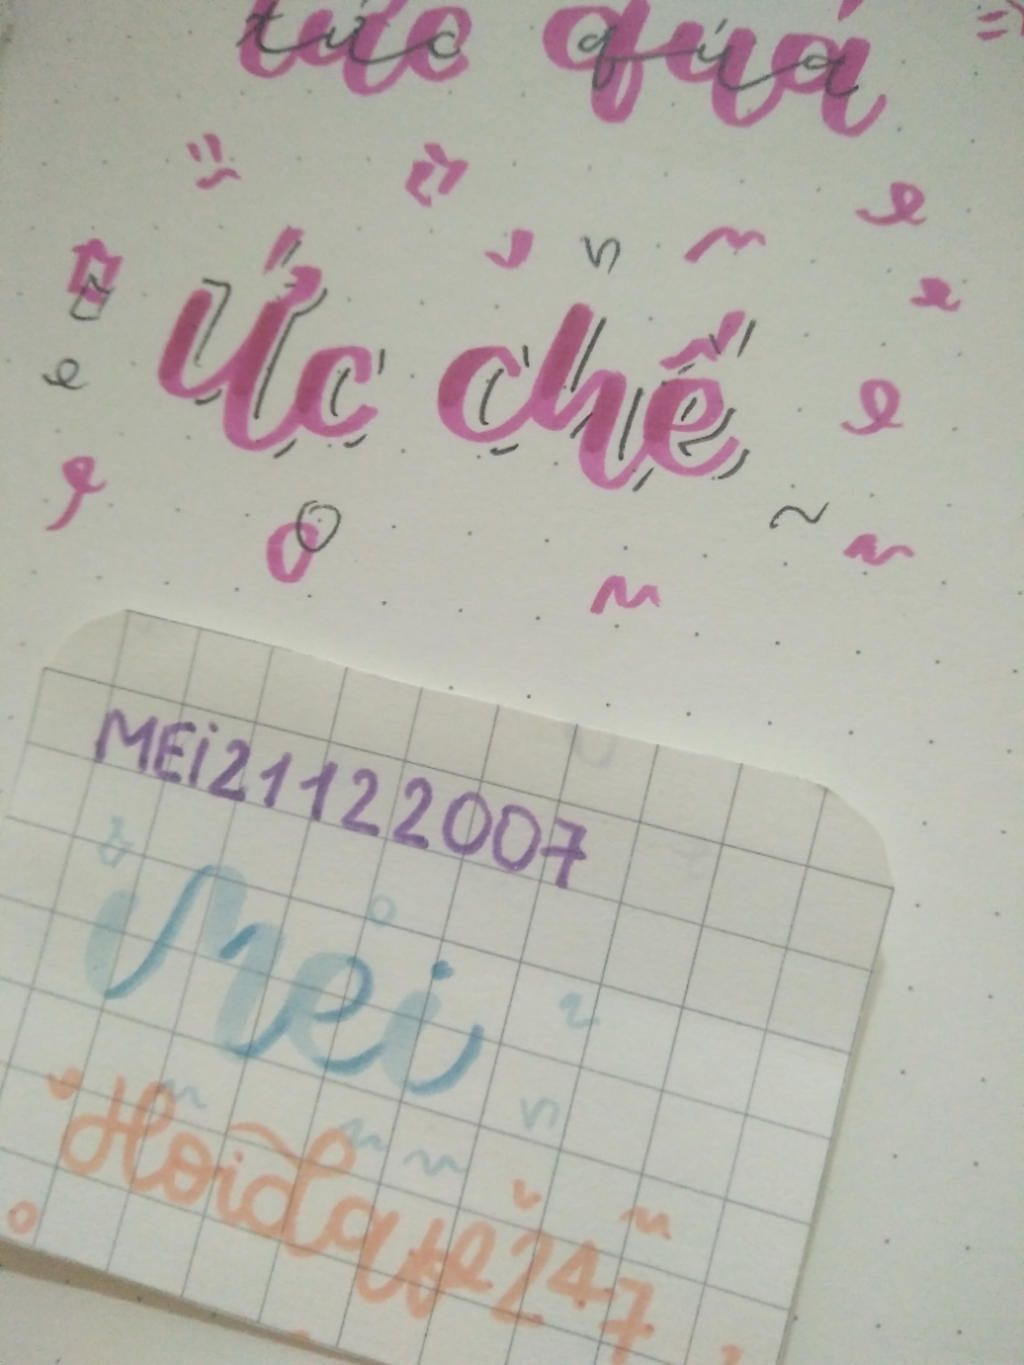 tức quá
Ức chế
MEi21122007
Mei
Hoidap247